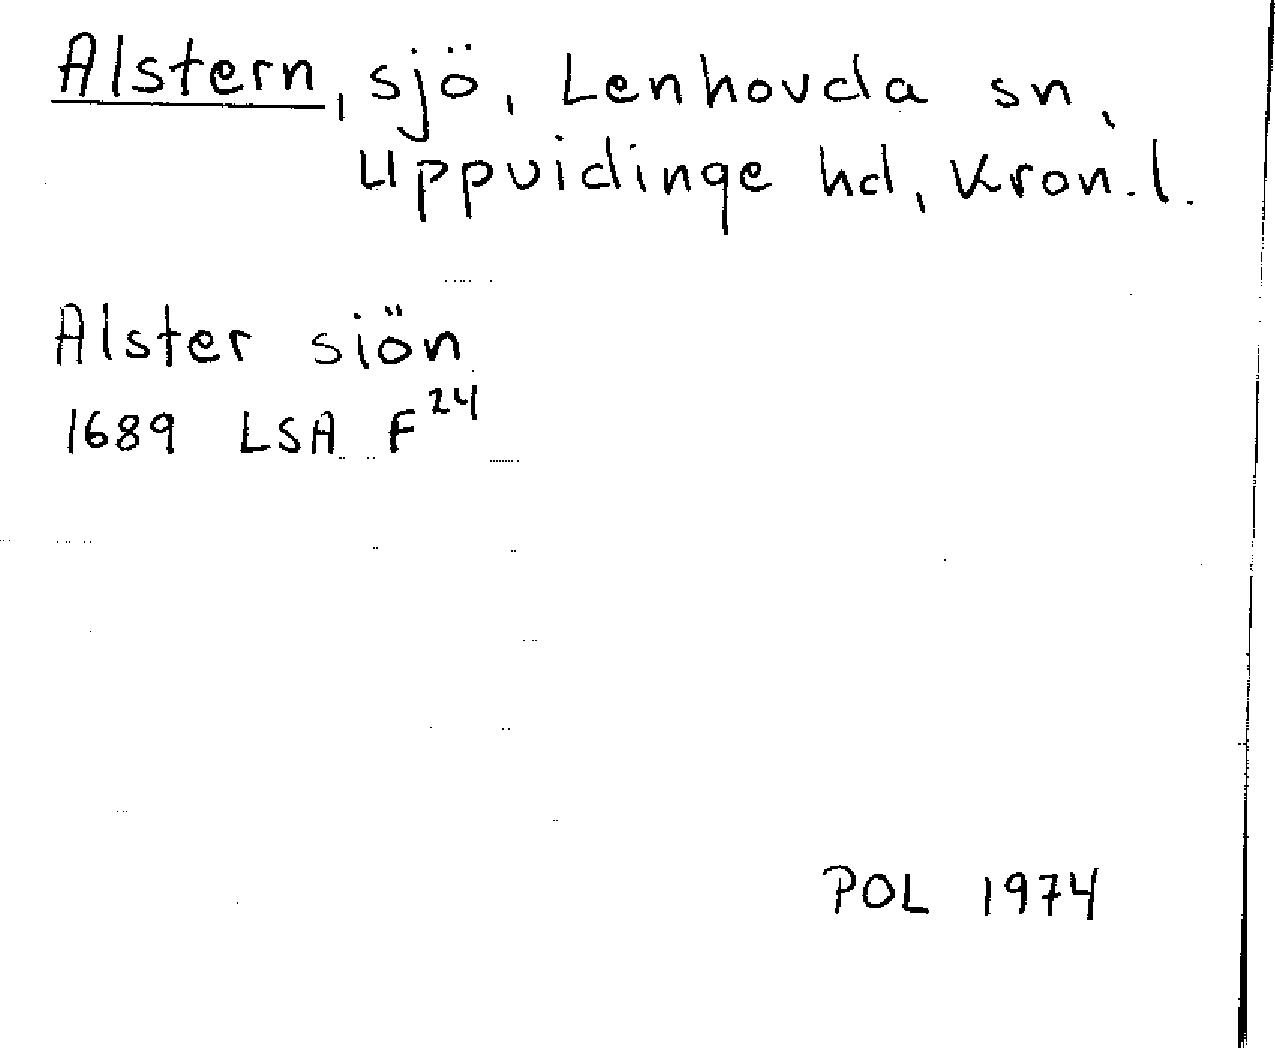 Alstern, sjö, Lenhovda sn,
Uppvidinge hd, Kron. l.
Alster siön
1689 LSA F 24
POL 1974